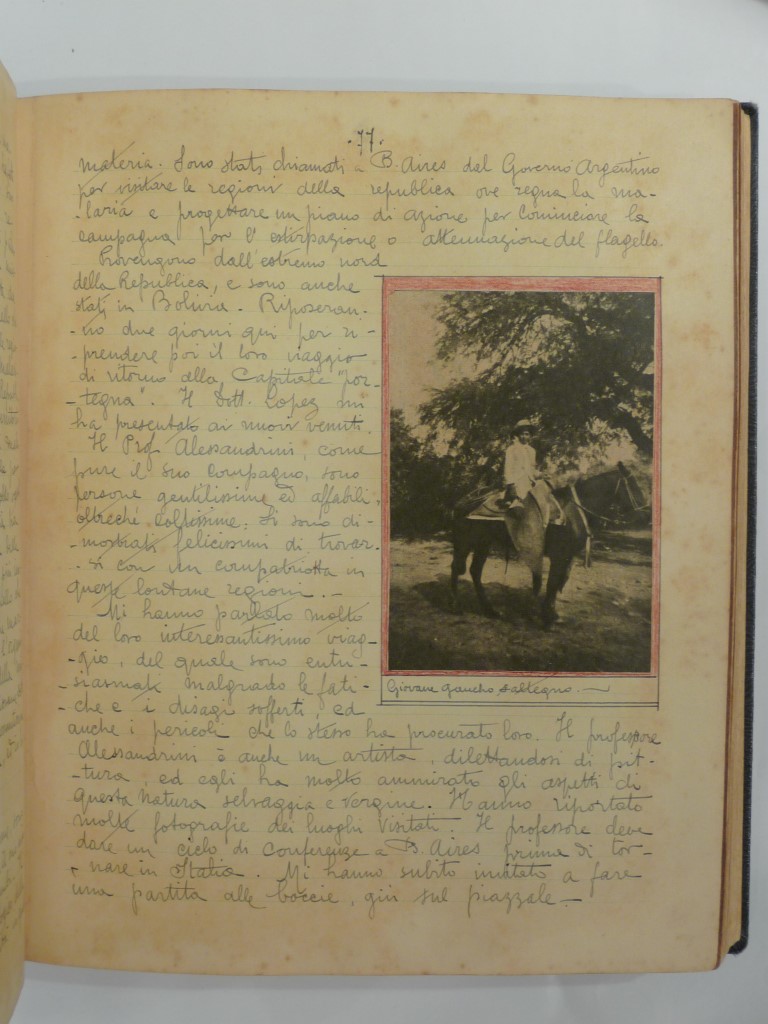 .77.
materia. Sono stati chiamati a B. Aires dal Governo Argentino
per visitare le regioni della republica ove regna la ma-
-laria e progettare un piano di azione per cominciare la
campagna per l'estirpazione o attenuazione del flagello.
Provengono dall'estremo nord
della Republica, e sono anche
stati in Bolivia. Riposeran-
-no due giorni qui per ri-
-prendere poi il loro viaggio
di ritorno alla Capitale "por-
-tegna". Il Dott. Lopez mi
ha presentato ai nuovi venuti.
Il Prof. Alessandrini, come
pure il suo compagno, sono
persone gentilissime ed affabili,
oltreché coltissime. Si sono di-
-mostrati felicissimi di trovar-
-si con un compatriotta in
queste lontane regioni.-
Mi hanno parlato molto
del loro interessantissimo viag-
-gio, del quale sono entu-
-siasmati malgrado le fati-
-che e i disagi sofferti, ed
anche i pericoli che lo stesso ha procurato loro. Il professore
Alessandrini è anche un artista, dilettandosi di pit-
-tura, ed egli ha molto ammirato gli aspetti di
questa natura selvaggia e vergine. Hanno riportato
molte fotografie dei luoghi visitati. Il professore deve
dare un ciclo di conferenze a B. Aires prima di tor-
-nare in Italia. Mi hanno subito invitato a fare
una partita alle boccie, giù sul piazzale.-
Giovane gaucho saltegno.-